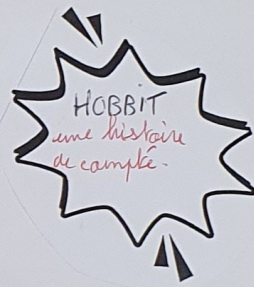 HOBBIT
une histoire
de compté.